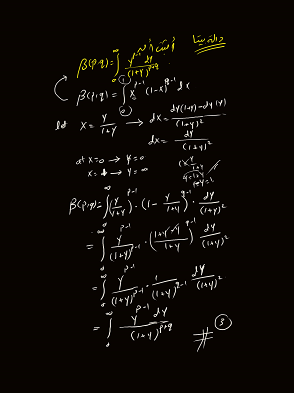 دالة بيتا
أثبت أن
β(p,q) = ∫₀^∞ y^(p-1) dy / (1+y)^(p+q)
β(p,q) = ∫₀^1 x^(p-1) (1-x)^(q-1) dx
let x = y/(1+y) → dx = (dy(1+y) - dy(y))/(1+y)²
dx = dy/(1+y)²
at x=0 → y=0
x=1 → y=∞
β(p,q) = ∫₀^∞ (y/(1+y))^(p-1) · (1 - y/(1+y))^(q-1) · dy/(1+y)²
= ∫₀^∞ y^(p-1)/(1+y)^(p-1) · ((1+y-y)/(1+y))^(q-1) dy/(1+y)²
= ∫₀^∞ y^(p-1)/(1+y)^(p-1) · 1/(1+y)^(q-1) · dy/(1+y)²
= ∫₀^∞ y^(p-1) dy/(1+y)^(p+q)
# ③